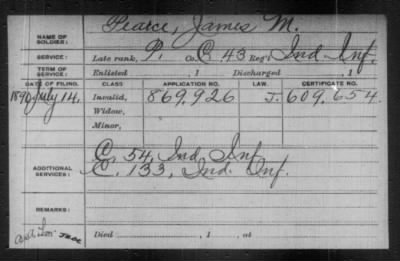 NAME OF SOLDIER: Pearce, James M.
SERVICE: Late rank, P. Co. C 43 Reg't Ind Inf.
TERM OF SERVICE: Enlisted , 1 Discharged , 1
DATE OF FILING. CLASS APPLICATION NO. LAW. CERTIFICATE NO.
1890 July 14. Invalid, 869,926 J. 609,654
Widow,
Minor,
ADDITIONAL SERVICES: C. 54, Ind Inf
C. 133, Ind. Inf.
REMARKS:
Died , 1 , at